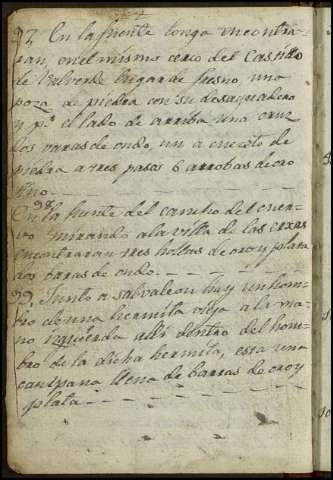 97. En la fuente longa encontra
ran, en el mismo cerco del Castillo
de Valverde lugar de fresno, una
poza de piedra con su desaguadero
y pr. el lado de arriba una cruz
dos varas de ondo, un canzoto de
piedra a tres pasos 6 arrobas de oro
fino.
98.
En la fuente del camino del cuer-
vo mirando a la villa de las
encontraran tres hollas de oro y plata
dos baras de ondo.
99. Junto a salvaleon hay un hom-
bro de una hermita vieja a la ma-
no izquierda alli dentro del hom-
bro de la dicha hermita, esta una
canpana llena de barras de oro y
plata